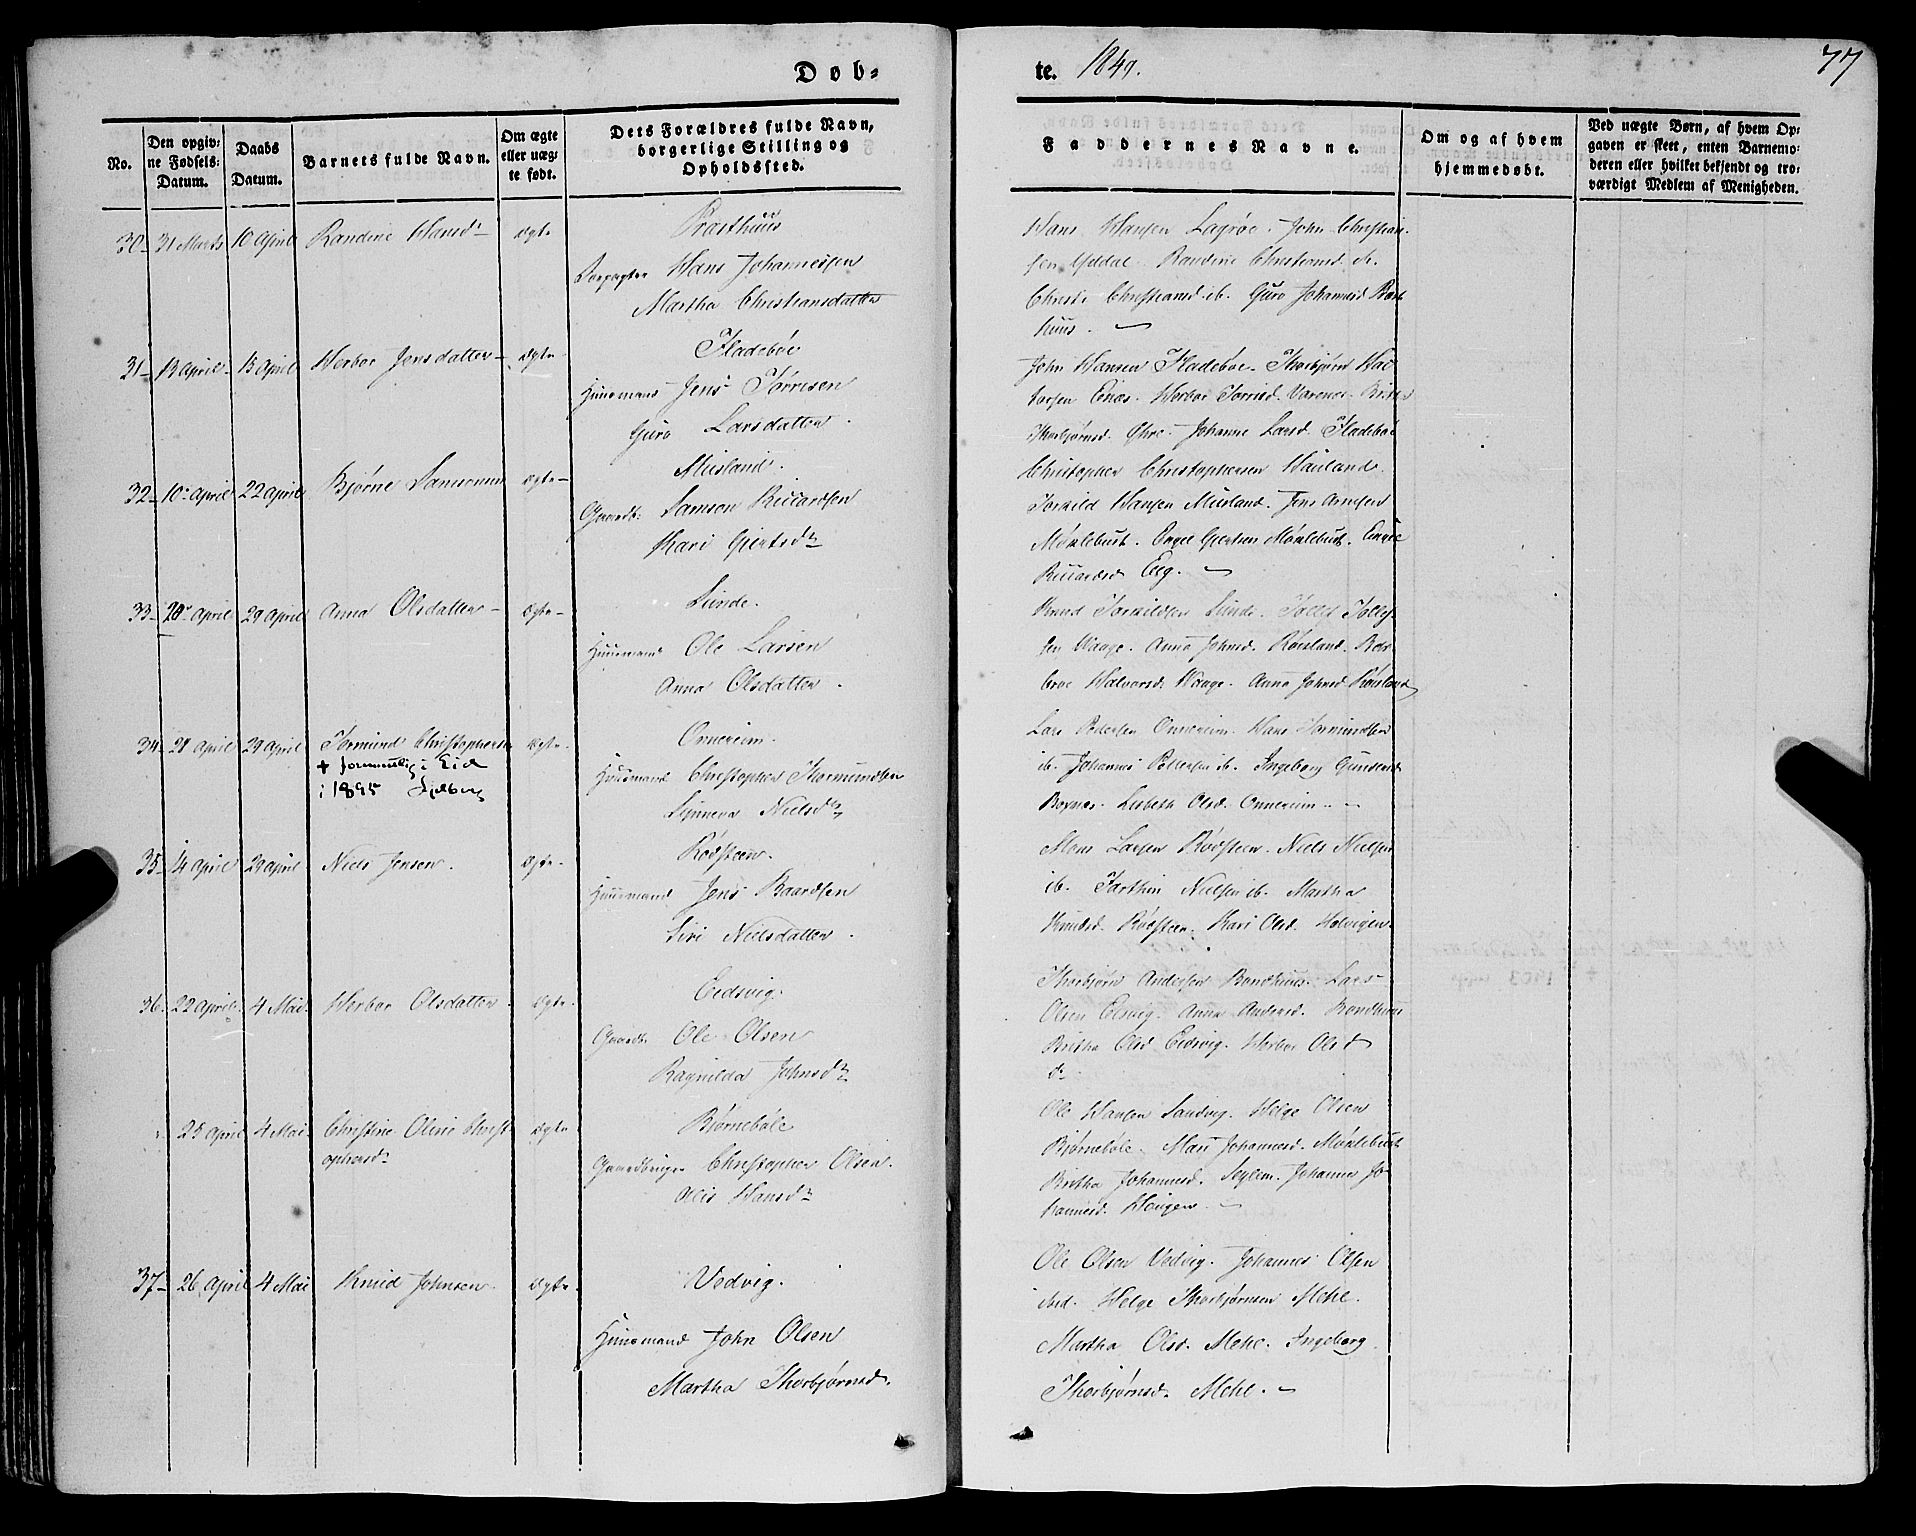 Døb-
te. 1849.
77
No.
Den opgiv-
ne Fødsels-
Datum.
Daabs
Datum.
Barnets fulde Navn.
Om ægte
eller uæg-
te født.
Dets Forældres fulde Navn,
borgerlige Stilling og
Opholdssted.
Faddernes Navne.
Om og af hvem
hjemmedøbt.
Ved uægte Børn, af hvem Op-
gaven er skeet, enten Barnemo-
deren eller hvilket bekjendt og tro-
værdigt Medlem af Menigheden.
30 31 Marts 10 April Randine Hansd ægte
Præsthuus
Hans Johannessen
Martha Christiansdatter
Hans Hansen Lagrøe. John Christian-
sen Yddal. Randine Christiansd. ib.
Christi Christiansd. ib. Guro Johannesd Præst
huus.
31 13 April 15 April Herbor Jensdatter ægte
Fladebøe
Huusmand Jens Tørrisen
Guro Larsdatter.
John Hansen Fladebøe. Thorbjørn Hac-
torsen Enæs. Herbor Torrisd. Varenes. Brite
Thorbjørnsd. Øhre. Johanne Larsd. Fladebøe
32 10 April 22 April Bjørne Samsonsen ægte
Miisland.
Gaardb. Samson Ricardsen
Kari Giertsd
Christopher Christophersen Hauland.
Torkild Hansen Miisland. Jens Arnesen
Møklebust. Engel Giertsen Møklebust.
Ricardsd Eeg.
33 20 April 29 April Anna Olsdatter ægte
Sunde.
Huusmand Ole Larsen
Anna Olsdatter.
Knud Torkildsen Sunde. Tollef Tollef-
sen Waage. Anna Johnsd. Røisland. Her-
broe Halvorsd. Waage. Anna Johnsd Røisland
34 21 April 29 April Tormund Christophersen ægte
+ formentlig i Eid
i 1895
Omvreim.
Huusmand Christopher Thormundsen
Synneva Nielsd
Lars Pedersen Omvreim. Hans Tormundsen
ib. Johannes Pettersen ib. Ingeborg Gundersd
Bognes. Lisbeth Olsd. Omvreim.
35 14 April 29 April Niels Jensen. ægte
Rødsteen.
Huusmand Jens Baardsen
Siri Nielsdatter.
Mons Larsen Rødsteen. Niels Nielsen
ib. Torthin Nielsen ib. Martha
Knudsd. Rødsteen. Kari Olsd. Holvigen.
36 22 April 4 Mai Herbor Olsdatter ægte
Eidsvig.
Gaardb. Ole Olsen
Ragnilda Johnsd
Thorbjørn Andersen Bondhuus. Lars
Olsen Eidsvig. Anna Andersd. Bondhuus
Britha Olsd Eidsvig. Herbor Olsd
do.
25 April 4 Mai Christine Oline Christ-
ophersd ægte
Bjørnebøle
Gaardbruger Christopher Olsen.
Alis Hansd
Ole Hansen Sandvig. Helge Olsen
Bjørnebøle. Mari Johannesd. Møklebust
Britha Johannesd. Seglem. Johannes Jo-
hannesd. Haugen.
37 26 April 4 Mai Knud Johnsen ægte
Vedvig.
Huusmand John Olsen
Martha Thorbjørnsd.
Ole Olsen Vedvig. Johannes Olsen
ibid. Helge Thorbjørnsen Mehl.
Martha Olsd. Mehl. Ingeborg
Thorbjørnsd. Mehl.